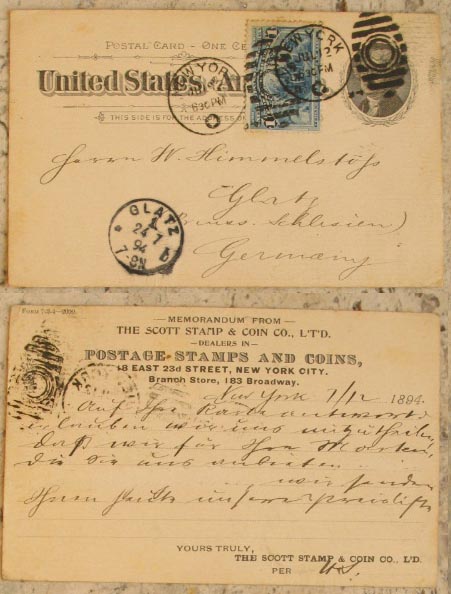 POSTAL CARD - ONE CE
United States
THIS SIDE IS FOR ADDRESS
NEW YORK
630PM
NEW YORK
Herrn W. Himmelstoss
Glatz
Schlesien)
Germany
GLATZ
1
24 7
94
7-8N
b
FORM 7-9-4-2000.
MEMORANDUM FROM
THE SCOTT STAMP & COIN CO., L'T'D.
DEALERS IN
POSTAGE STAMPS AND COINS,
18 EAST 23d STREET, NEW YORK CITY.
Branch Store, 183 Broadway.
New York 7/12 1894.
Auf Ihre Karte antwortd
erlauben wir uns mitzutheilen
daß wir für Ihre Marken,
die Sie uns anbieten
wir senden
Ihnen heute unsere Preisliste
YOURS TRULY,
THE SCOTT STAMP & COIN CO., L'T'D.
PER